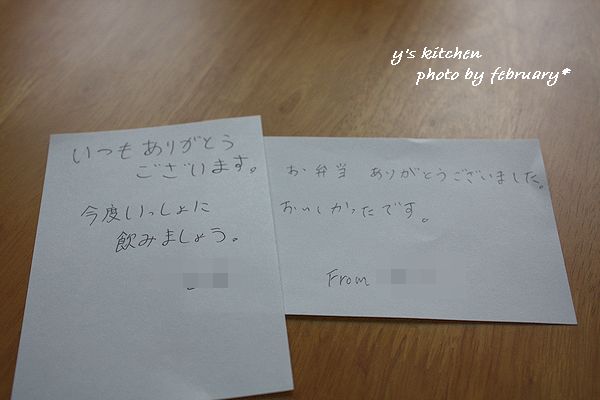 y's kitchen
photo by february*
いつも ありがとう
ございます。
今度いっしょに
飲みましょう。
お弁当 ありがとうございました。
おいしかったです。
From